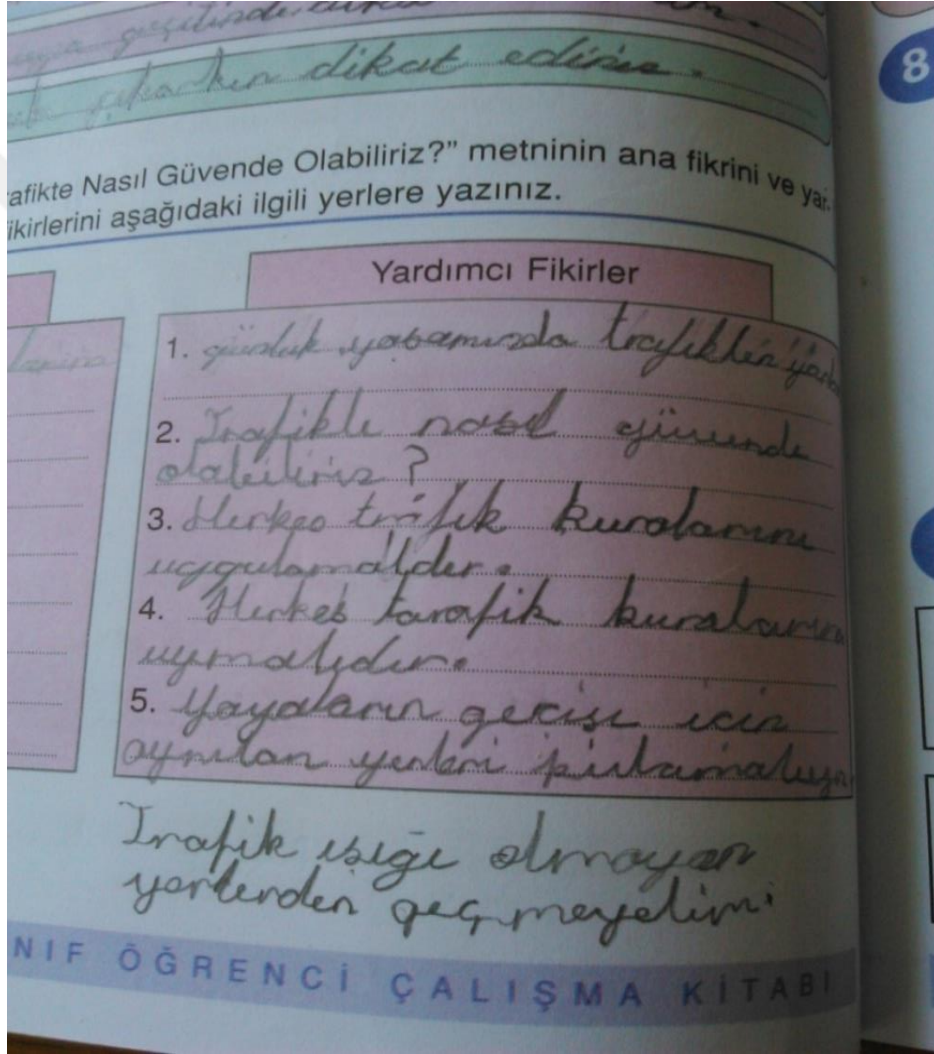 geçitinde
çıkarken dikat ediniz.
8
afikte Nasıl Güvende Olabiliriz?" metninin ana fikrini ve yar-
ikirlerini aşağıdaki ilgili yerlere yazınız.
Yardımcı Fikirler
1. günlük yaşamımızda trafikten
2. Trafikte nasıl güvende
olabiliriz?
3. Herkes trafik kuralarını
uygulamalıdır.
4. Herkes tarafik kuralarına
uymalıdır.
5. Yayaların geçişi için
ayrılan yerleri
Trafik ışığı olmayan
yerlerden geçmeyelim.
NIF ÖĞRENCİ ÇALIŞMA KİTABI